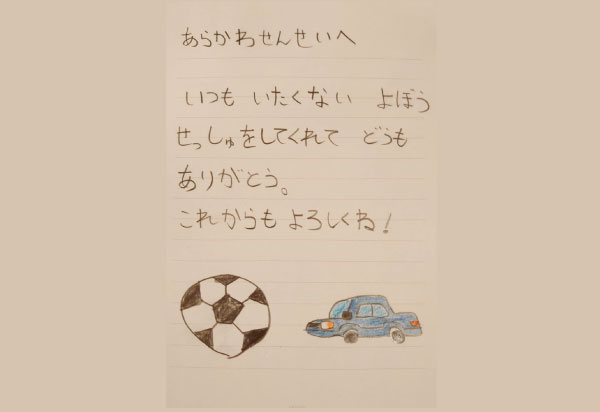 あらかわせんせいへ
いつも いたくない よぼう
せっしゅをしてくれて どうも
ありがとう。
これからもよろしくね!